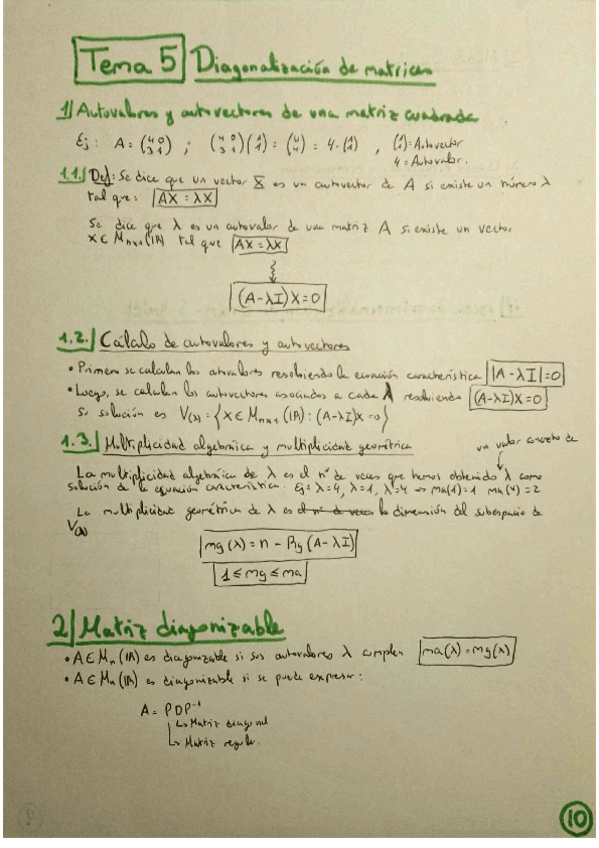 Tema 5 Diagonalización de matrices
1) Autovalores y autovectores de una matriz cuadrada
Ej: A = (4 0 / 3 1) ; (4 0 / 3 1)(1 / 1) = (4 / 4) = 4·(1 / 1) , (1 / 1) = Autovector
4 = Autovalor.
1.1. Def: Se dice que un vector X es un autovector de A si existe un número λ
tal que: AX = λX
Se dice que λ es un autovalor de una matriz A si existe un vector
X ∈ Mnx1(IR) tal que AX = λX
(A-λI)X=0
1.2. Cálculo de autovalores y autovectores
• Primero se calculan los autovalores resolviendo la ecuación característica |A-λI|=0
• Luego, se calculan los autovectores asociados a cada λ resolviendo (A-λI)X=0
Su solución es V(λ) = {X ∈ Mnx1(IR) : (A-λI)X=0}
1.3. Multiplicidad algebraica y multiplicidad geométrica
un valor concreto de
La multiplicidad algebraica de λ es el nº de veces que hemos obtenido λ como
solución de la ecuación característica. Ej: λ=4, λ=1, λ=4 ⇒ ma(1)=1 ma(4)=2
La multiplicidad geométrica de λ es el nº de veces la dimensión del subespacio de
V(λ)
mg(λ) = n - Rg(A-λI)
1 ≤ mg ≤ ma
2) Matriz diagonizable
• A ∈ Mn(IR) es diagonizable si sus autovalores λ cumplen ma(λ) = mg(λ)
• A ∈ Mn(IR) es diagonizable si se puede expresar:
A = PDP⁻¹
↳ Matriz diagonal
↳ Matriz regular.
10